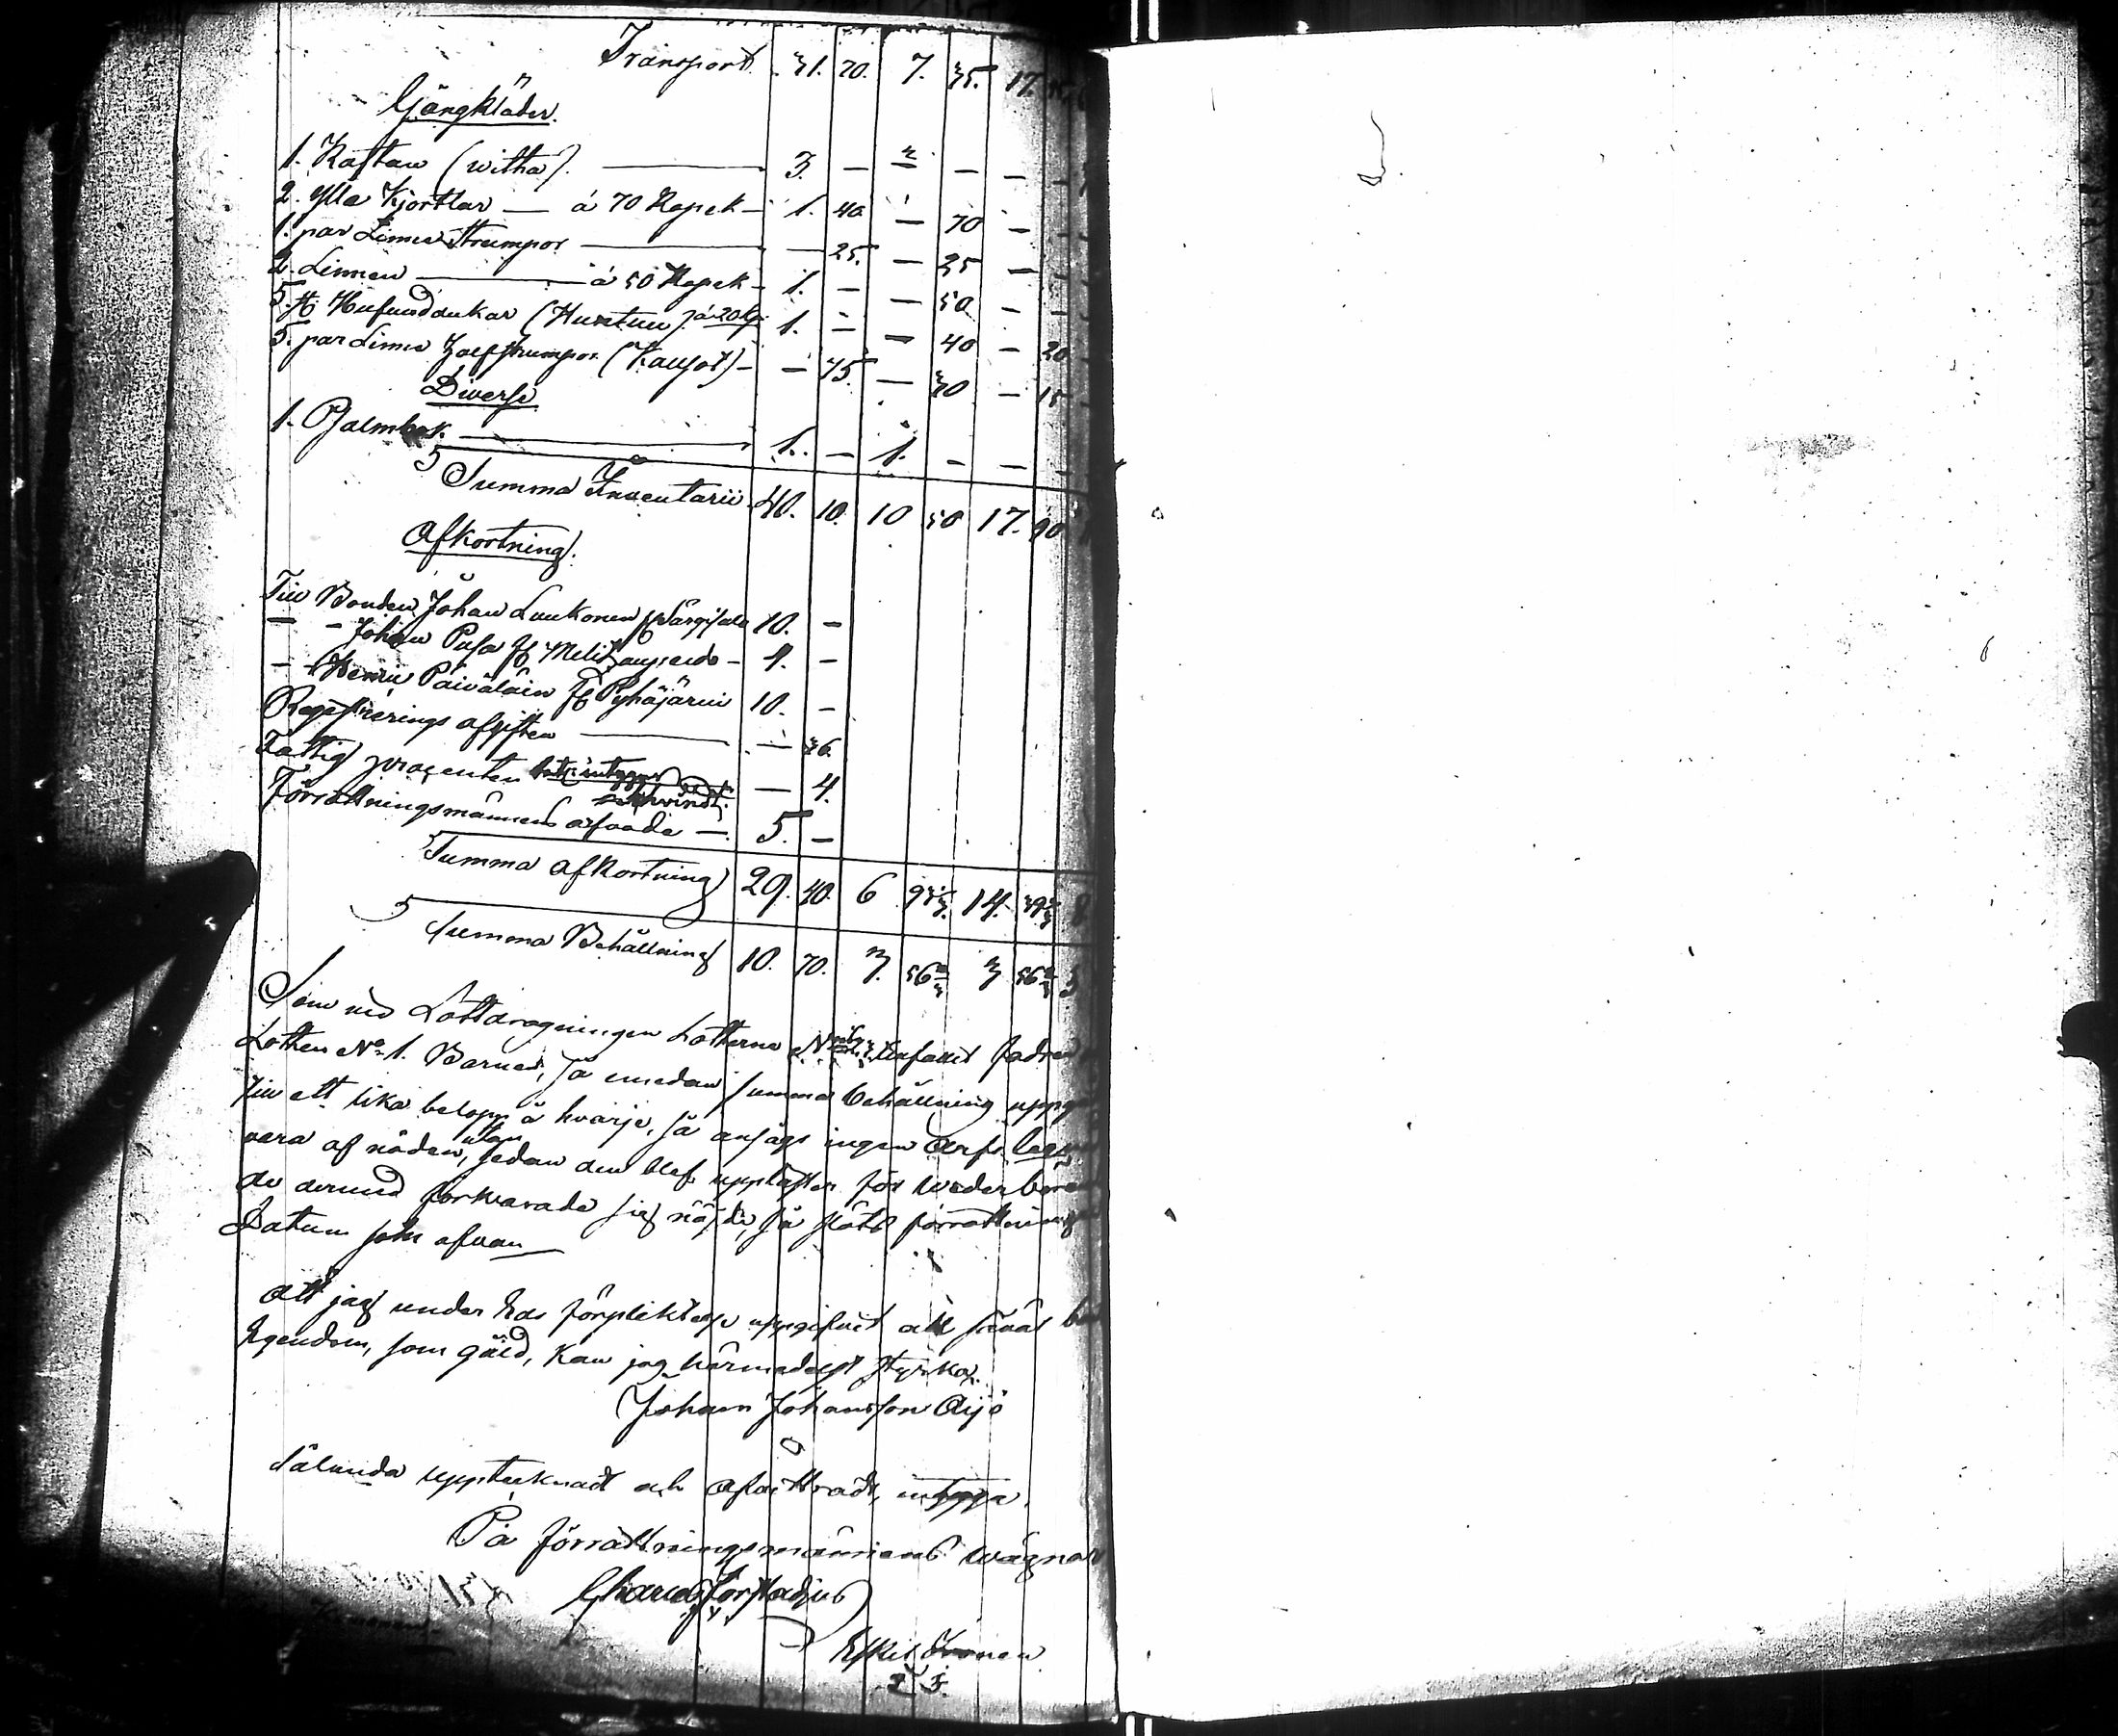 Transport 31. 70. 7. 35. 17.
Gångkläder.
1. Kaftan (witha). — 3. — — — —
2. Ylle Kjortlar — á 70 Kopek — 1. 40. — 70 —
1. par Linne strumpor — — 25. — 25 —
2. Linnen — á 50 Kopek — 1. — — 50 —
5. st Hufvuddukar (Huntun) á 20 kp 1. — — 40 — 20
5. par Linne strumpor — — 45. — 30 — 15
Diverse
1. Psalmbok. — 1. — 1. — —
Summa Inventarii 40. 10. 10 50 17. 90
Afkortning.
Till Bonden Johan Luukonen 10. —
— — Johan Pusa 4. —
— Henric Päiväläin fr Pyhäjärvi 10. —
Registrerings afgiften — — 36.
Fattig procenten — 4.
Förrättningsmännens arfvode — 5. —
Summa afkortning 29. 40. 6 14.
Summa Behållning 10. 70. 3. 56 3 56
Som vid Lottdragningen Lotterne tillfallit fadren
Lotten No 1. Barnen, så emedan summa behållning
till ett lika belopp á hvarje, så ansågs ingen arfs
vara af nöden, utan sedan den blef uppläsen för wederbörande
de dermed förklarade sig nöjde, så slöts förrättningen
Datum som ofvan
Att jag under Eds förpliktelse uppgifvit all såväl
Egendom, som gäld, kan jag härmedelst styrka.
Johan Johansson Äijö
Sålunda upptecknadt och afvittradt, intyga.
På förrättningsmännens wägnar
Forstadius
Eskil Ironen